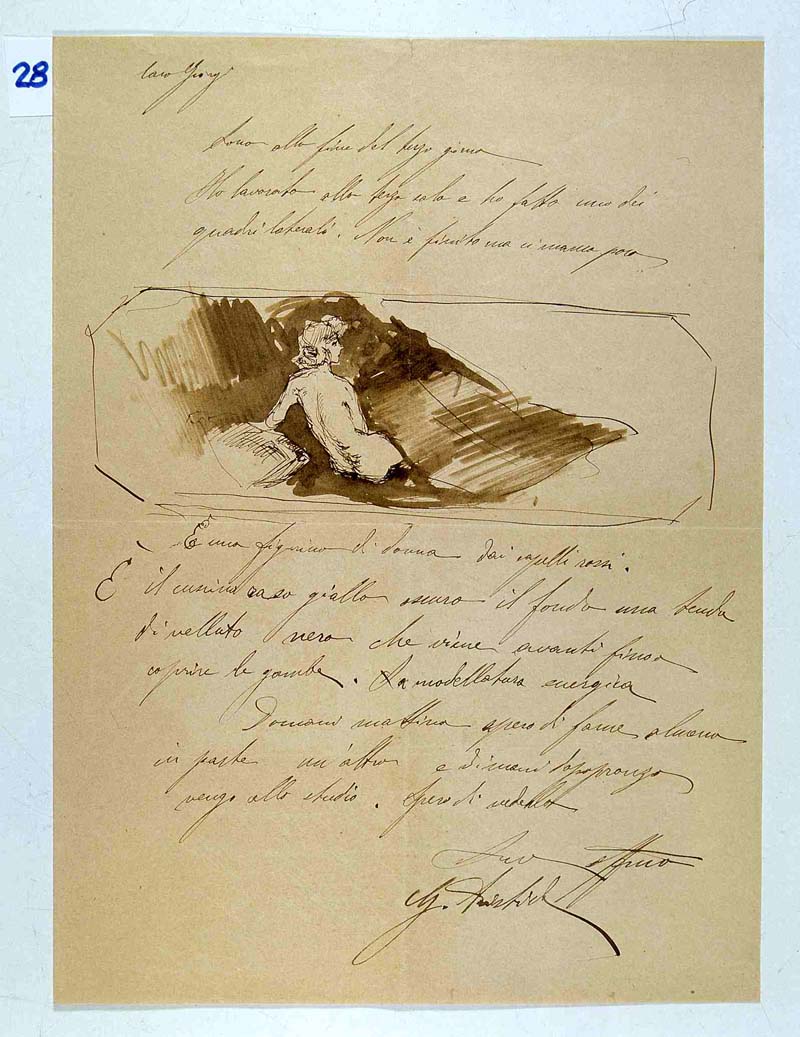 28
Caro Giorgi
Sono alla fine del terzo giorno
Ho lavorato alla terza sala e ho fatto uno dei
quadri laterali. Non è finito ma ci manca poco
È una figurina di donna dai capelli rossi.
E il cuscino raso giallo oscuro il fondo una tenda
di velluto nero che viene avanti fino a
coprire le gambe. La modellatura energica
Domani mattina spero di farne almeno
in parte un'altro e dimani dopopranzo
vengo allo studio. Spero di vederla
Suo affmo
G.